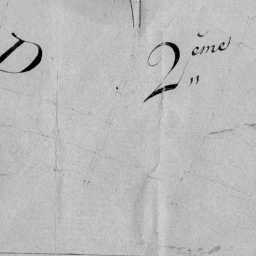 D 2ème